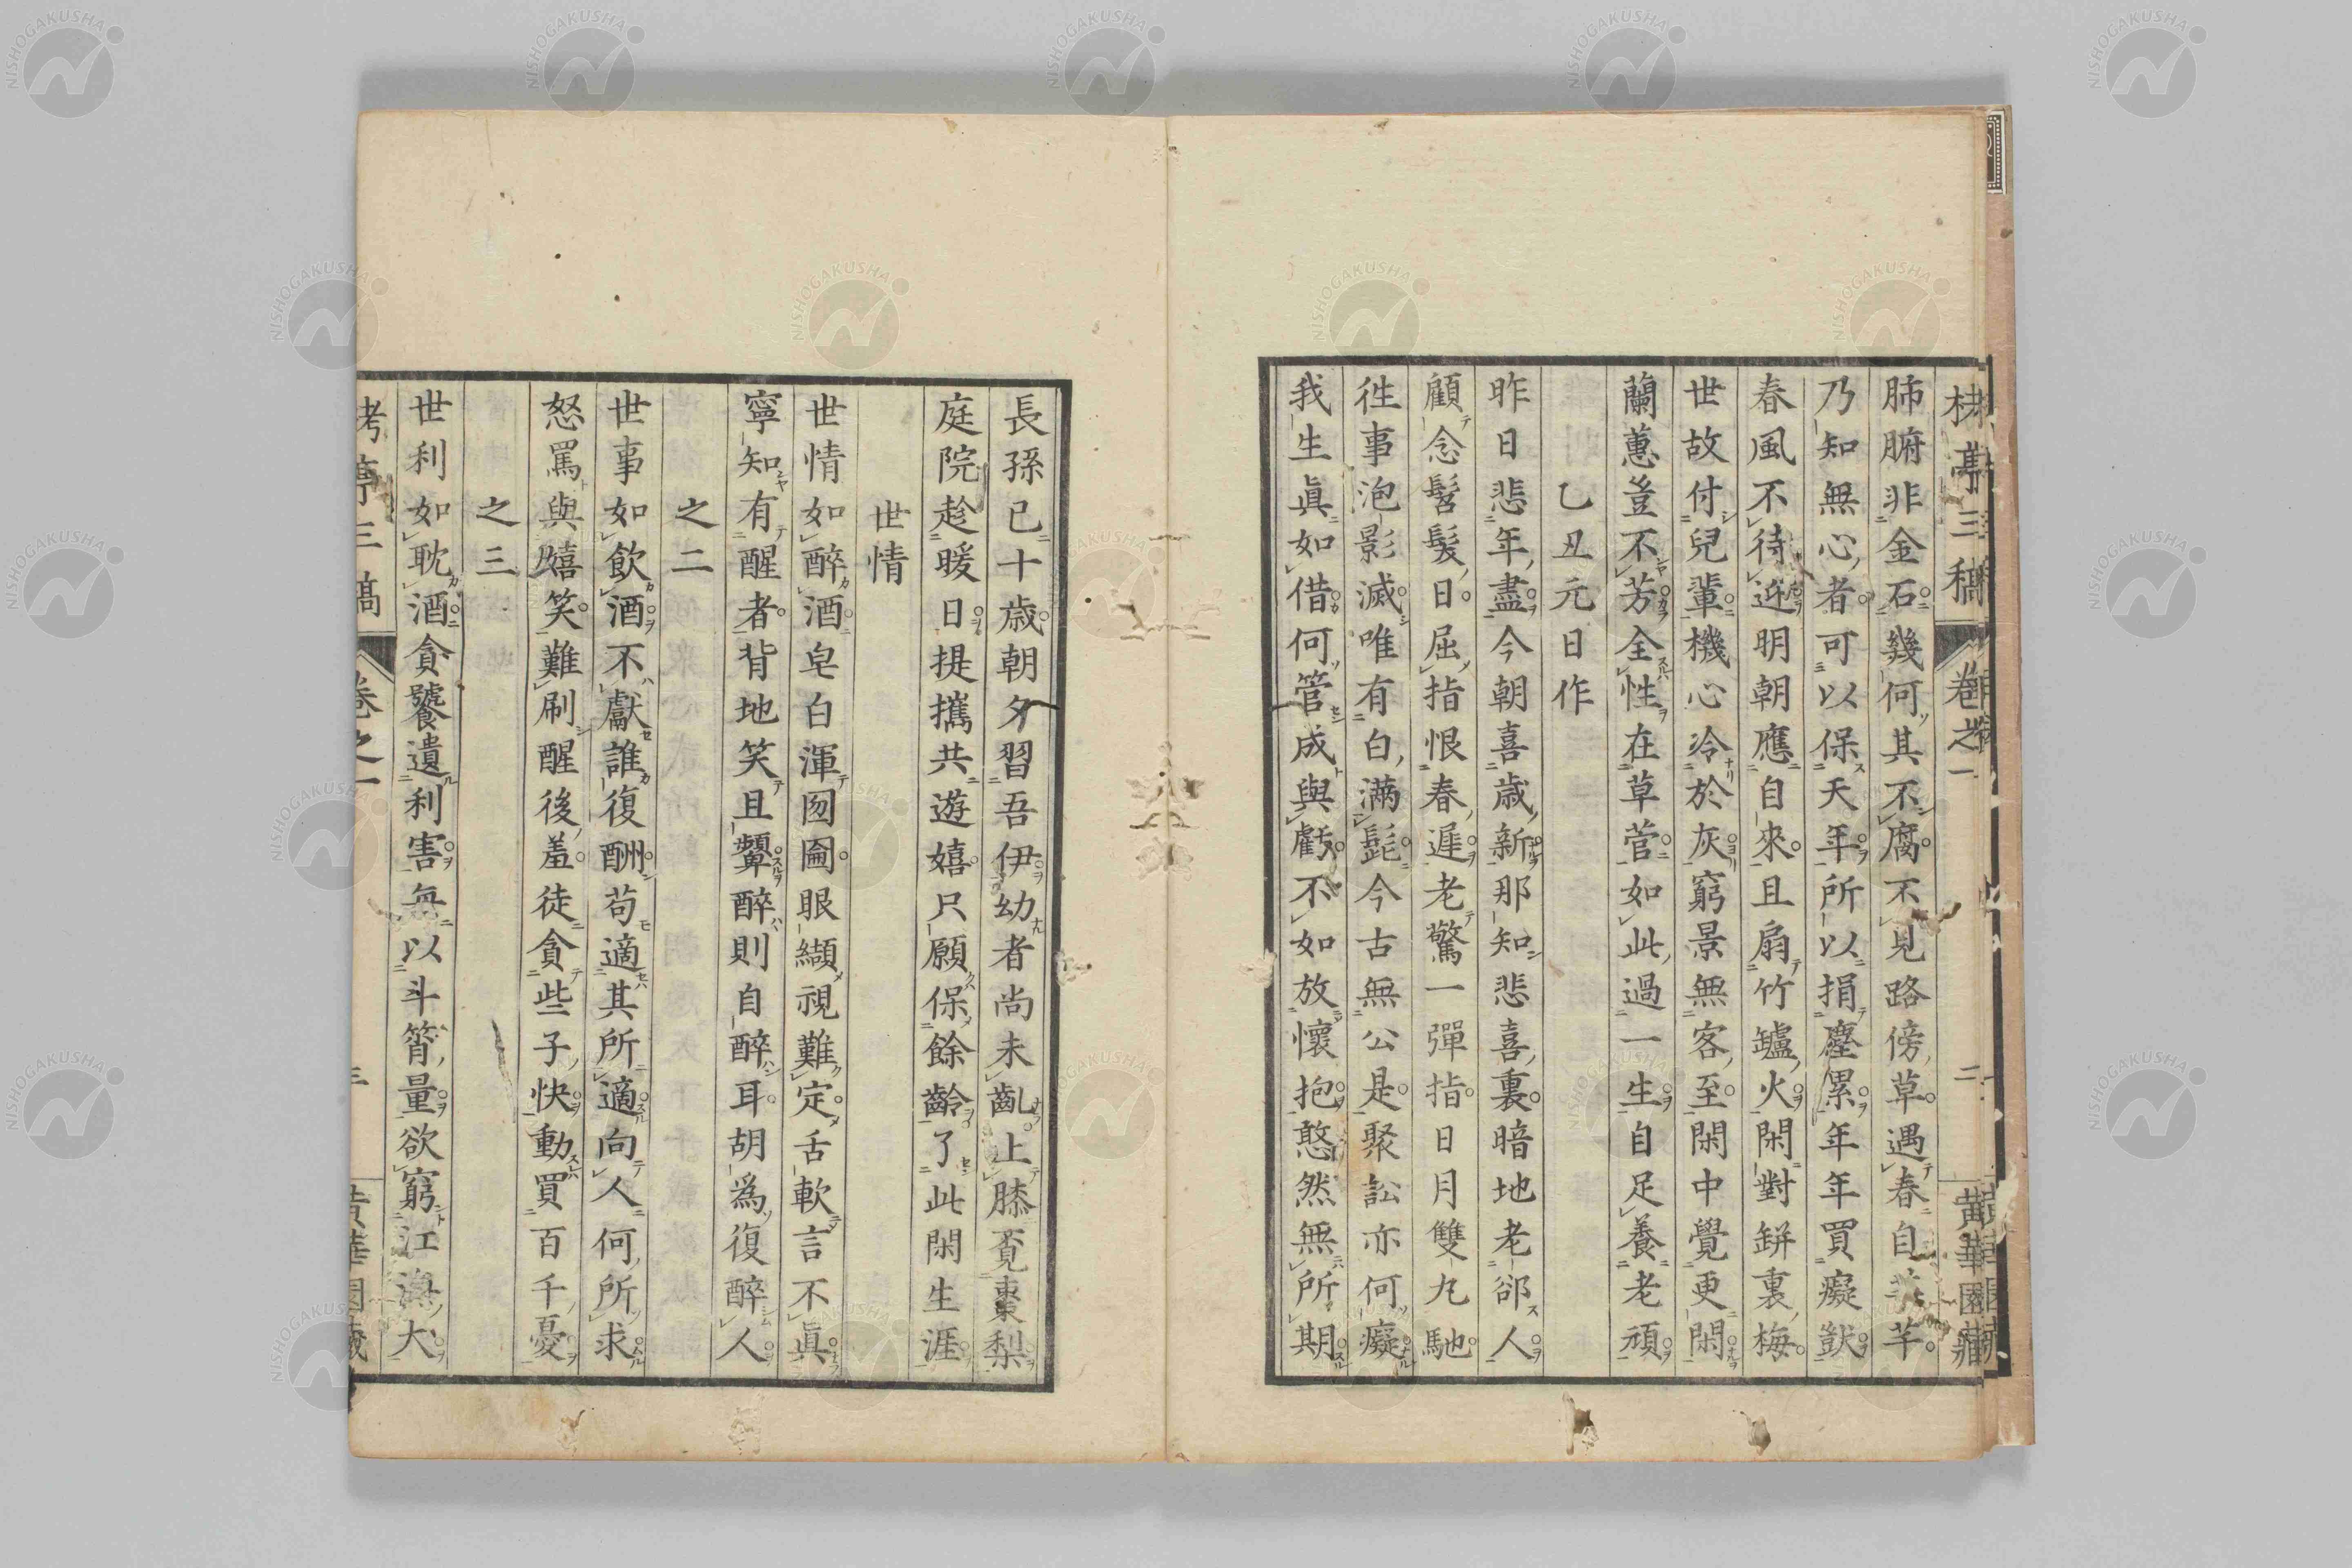 栲亭三稿 卷之一 二 黃華園藏
肺腑非金石幾何其不腐不見路傍草遇春自芊
乃知無心者可以保天年所以捐塵累年年買癡獃
春風不待迎明朝應自來且扇竹罏火閑對缾裏梅
世故付兒輩機心冷於灰窮景無客至閑中覺更閑
蘭蕙豈不芳全性在草菅如此過一生自足養老頑
乙丑元日作
昨日悲年盡今朝喜歲新那知悲喜裏暗地老郤人
顧念髫髮日屈指恨春遲老驚一彈指日月雙丸馳
徃事泡影滅唯有白滿髭今古無公是聚訟亦何癡
我生眞如借何管成與虧不如放懷抱憨然無所期
長孫已十歲朝夕習吾伊幼者尚未亂上膝覔棗梨
庭院趁暖日提攜共遊嬉只願保餘齡了此閑生涯
世情
世情如醉酒皂白渾囫圇眼纈視難定舌軟言不眞
寧知有醒者背地笑且顰醉則自醉耳胡爲復醉人
之二
世事如飲酒不獻誰復酬苟適其所適向人何所求
怒罵與嬉笑難刷醒後羞徒貪些子快動買百千憂
之三
世利如耽酒貪饕遺利害無以斗筲量欲窮江海大
栲亭三稿 卷之一 三 黃華園藏
NISHOGAKUSHA